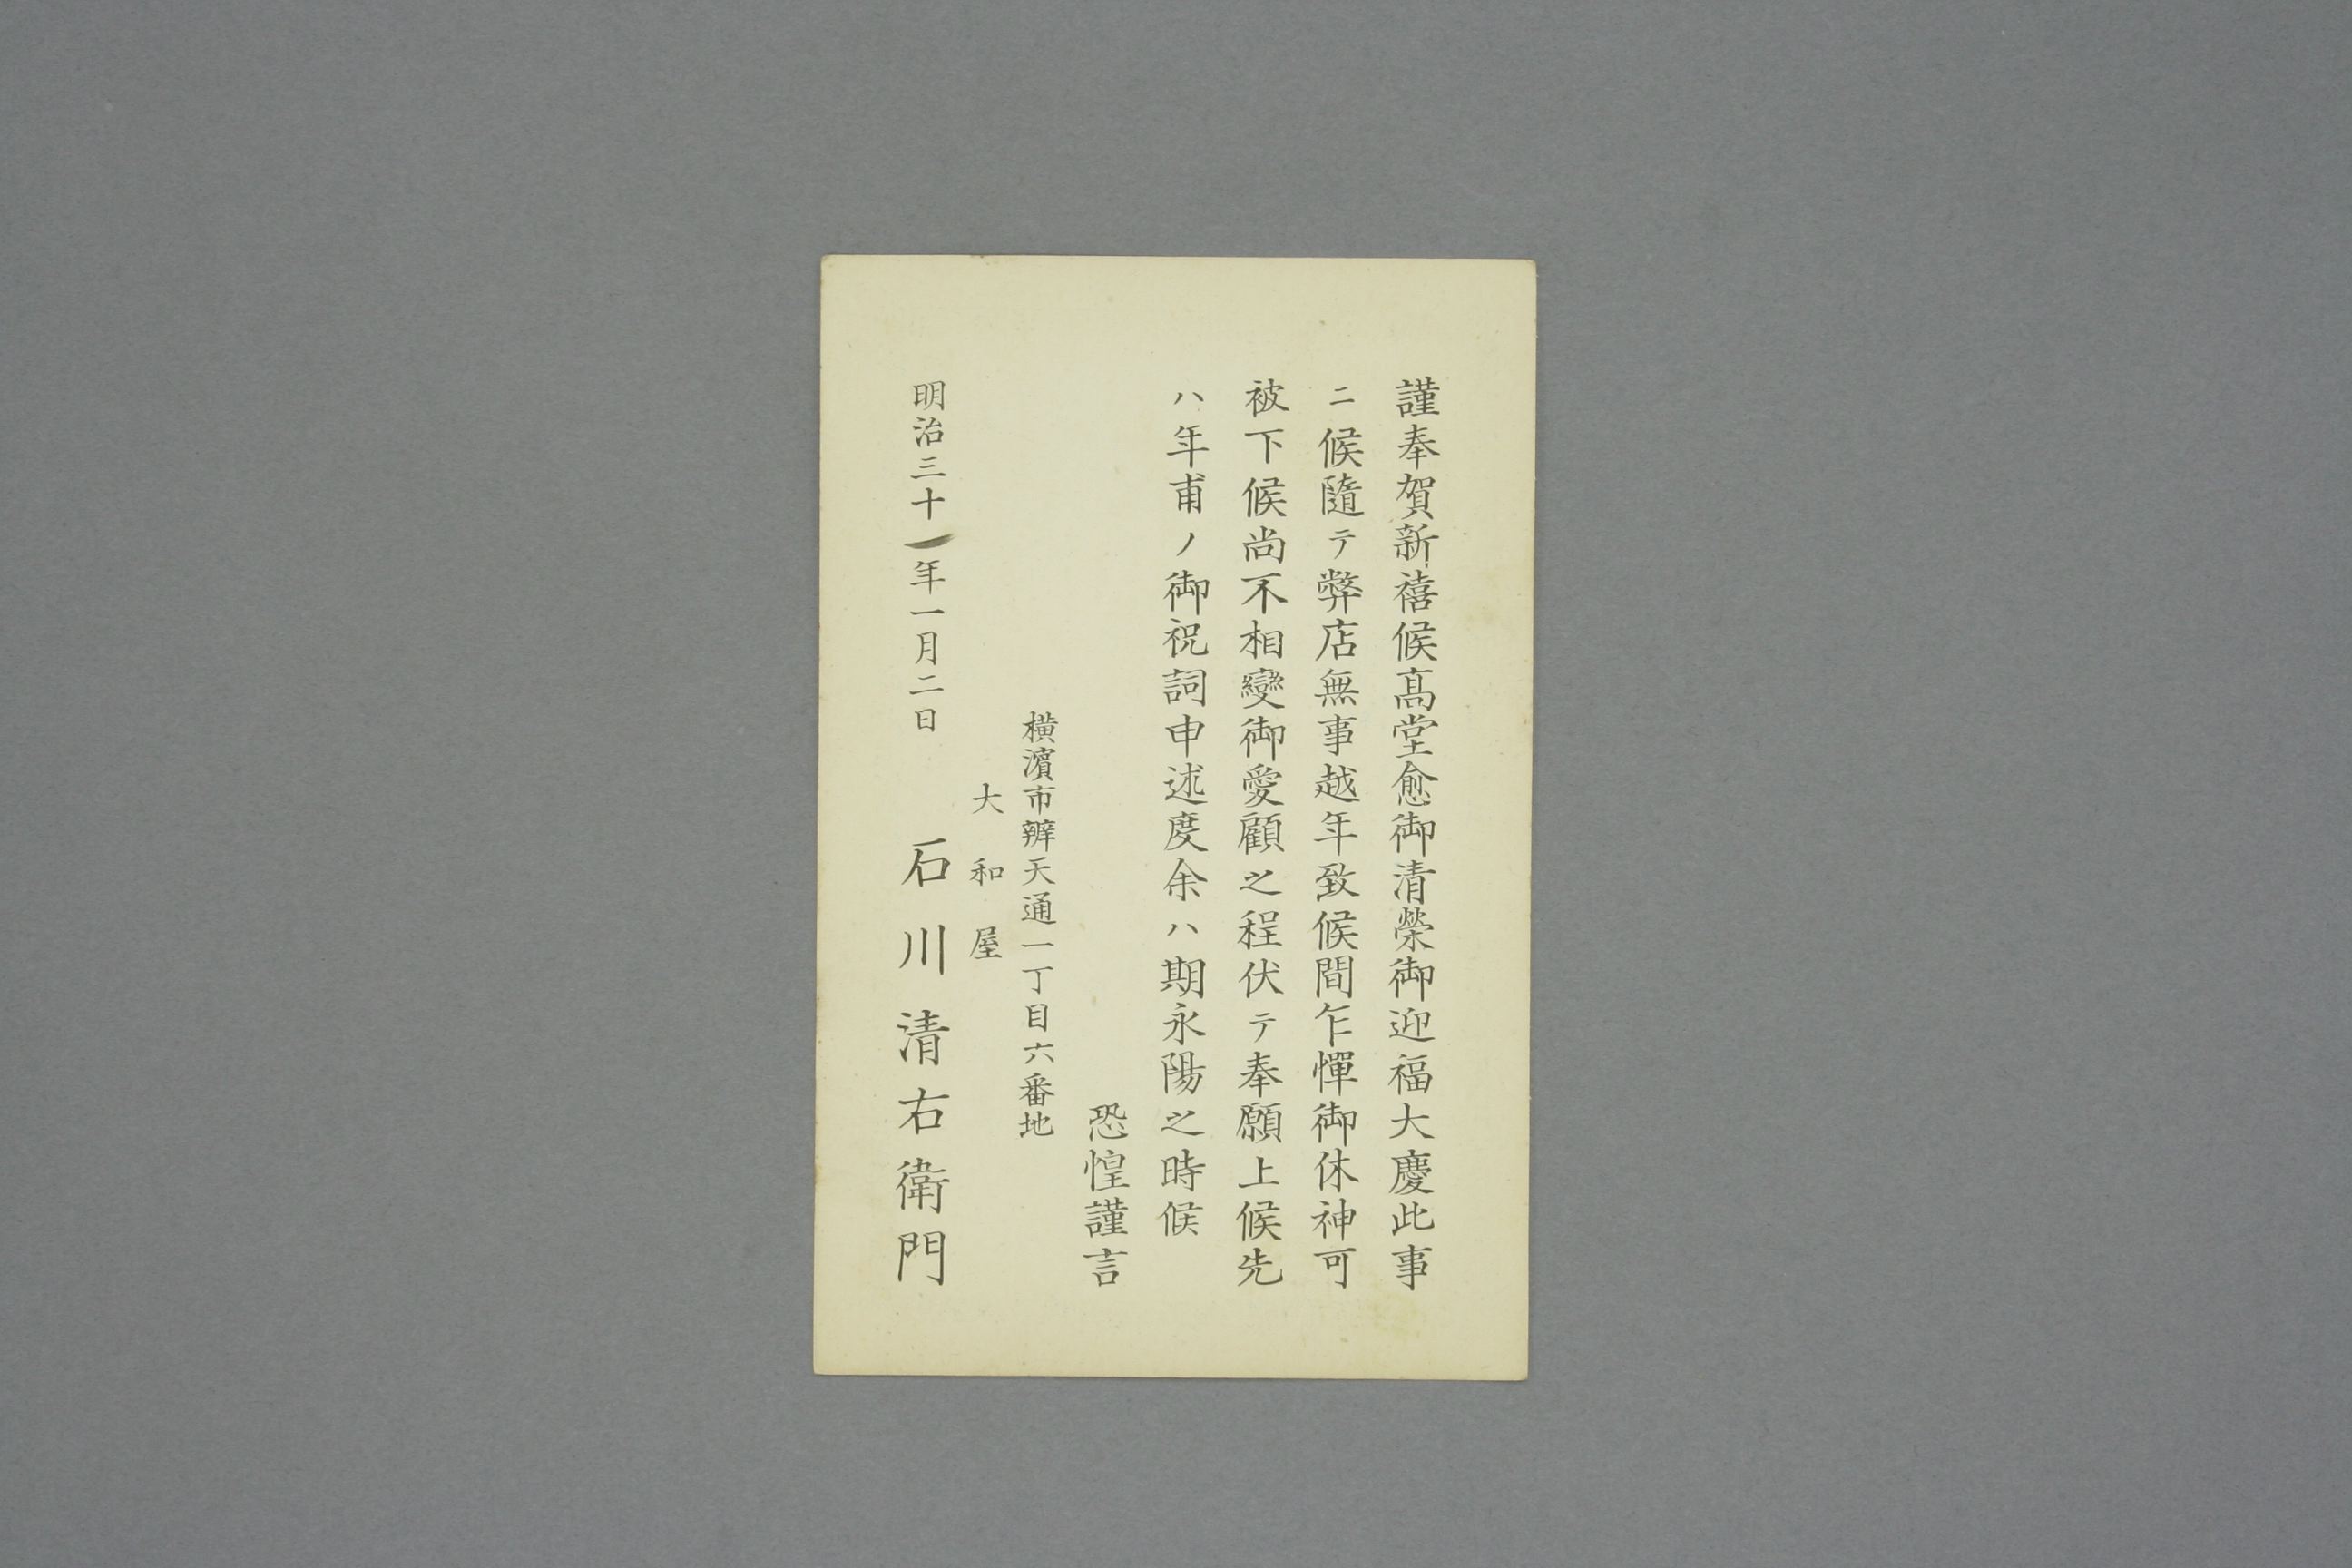 謹奉賀新禧候髙堂愈御清榮御迎福大慶此事
ニ候隨テ弊店無事越年致候間乍憚御休神可
被下候尚不相變御愛顧之程伏テ奉願上候先
ハ年甫ノ御祝詞申述度余ハ期永陽之時候
恐惶謹言
横濱市辨天通一丁目六番地
大和屋
石川清右衛門
明治三十一年一月二日